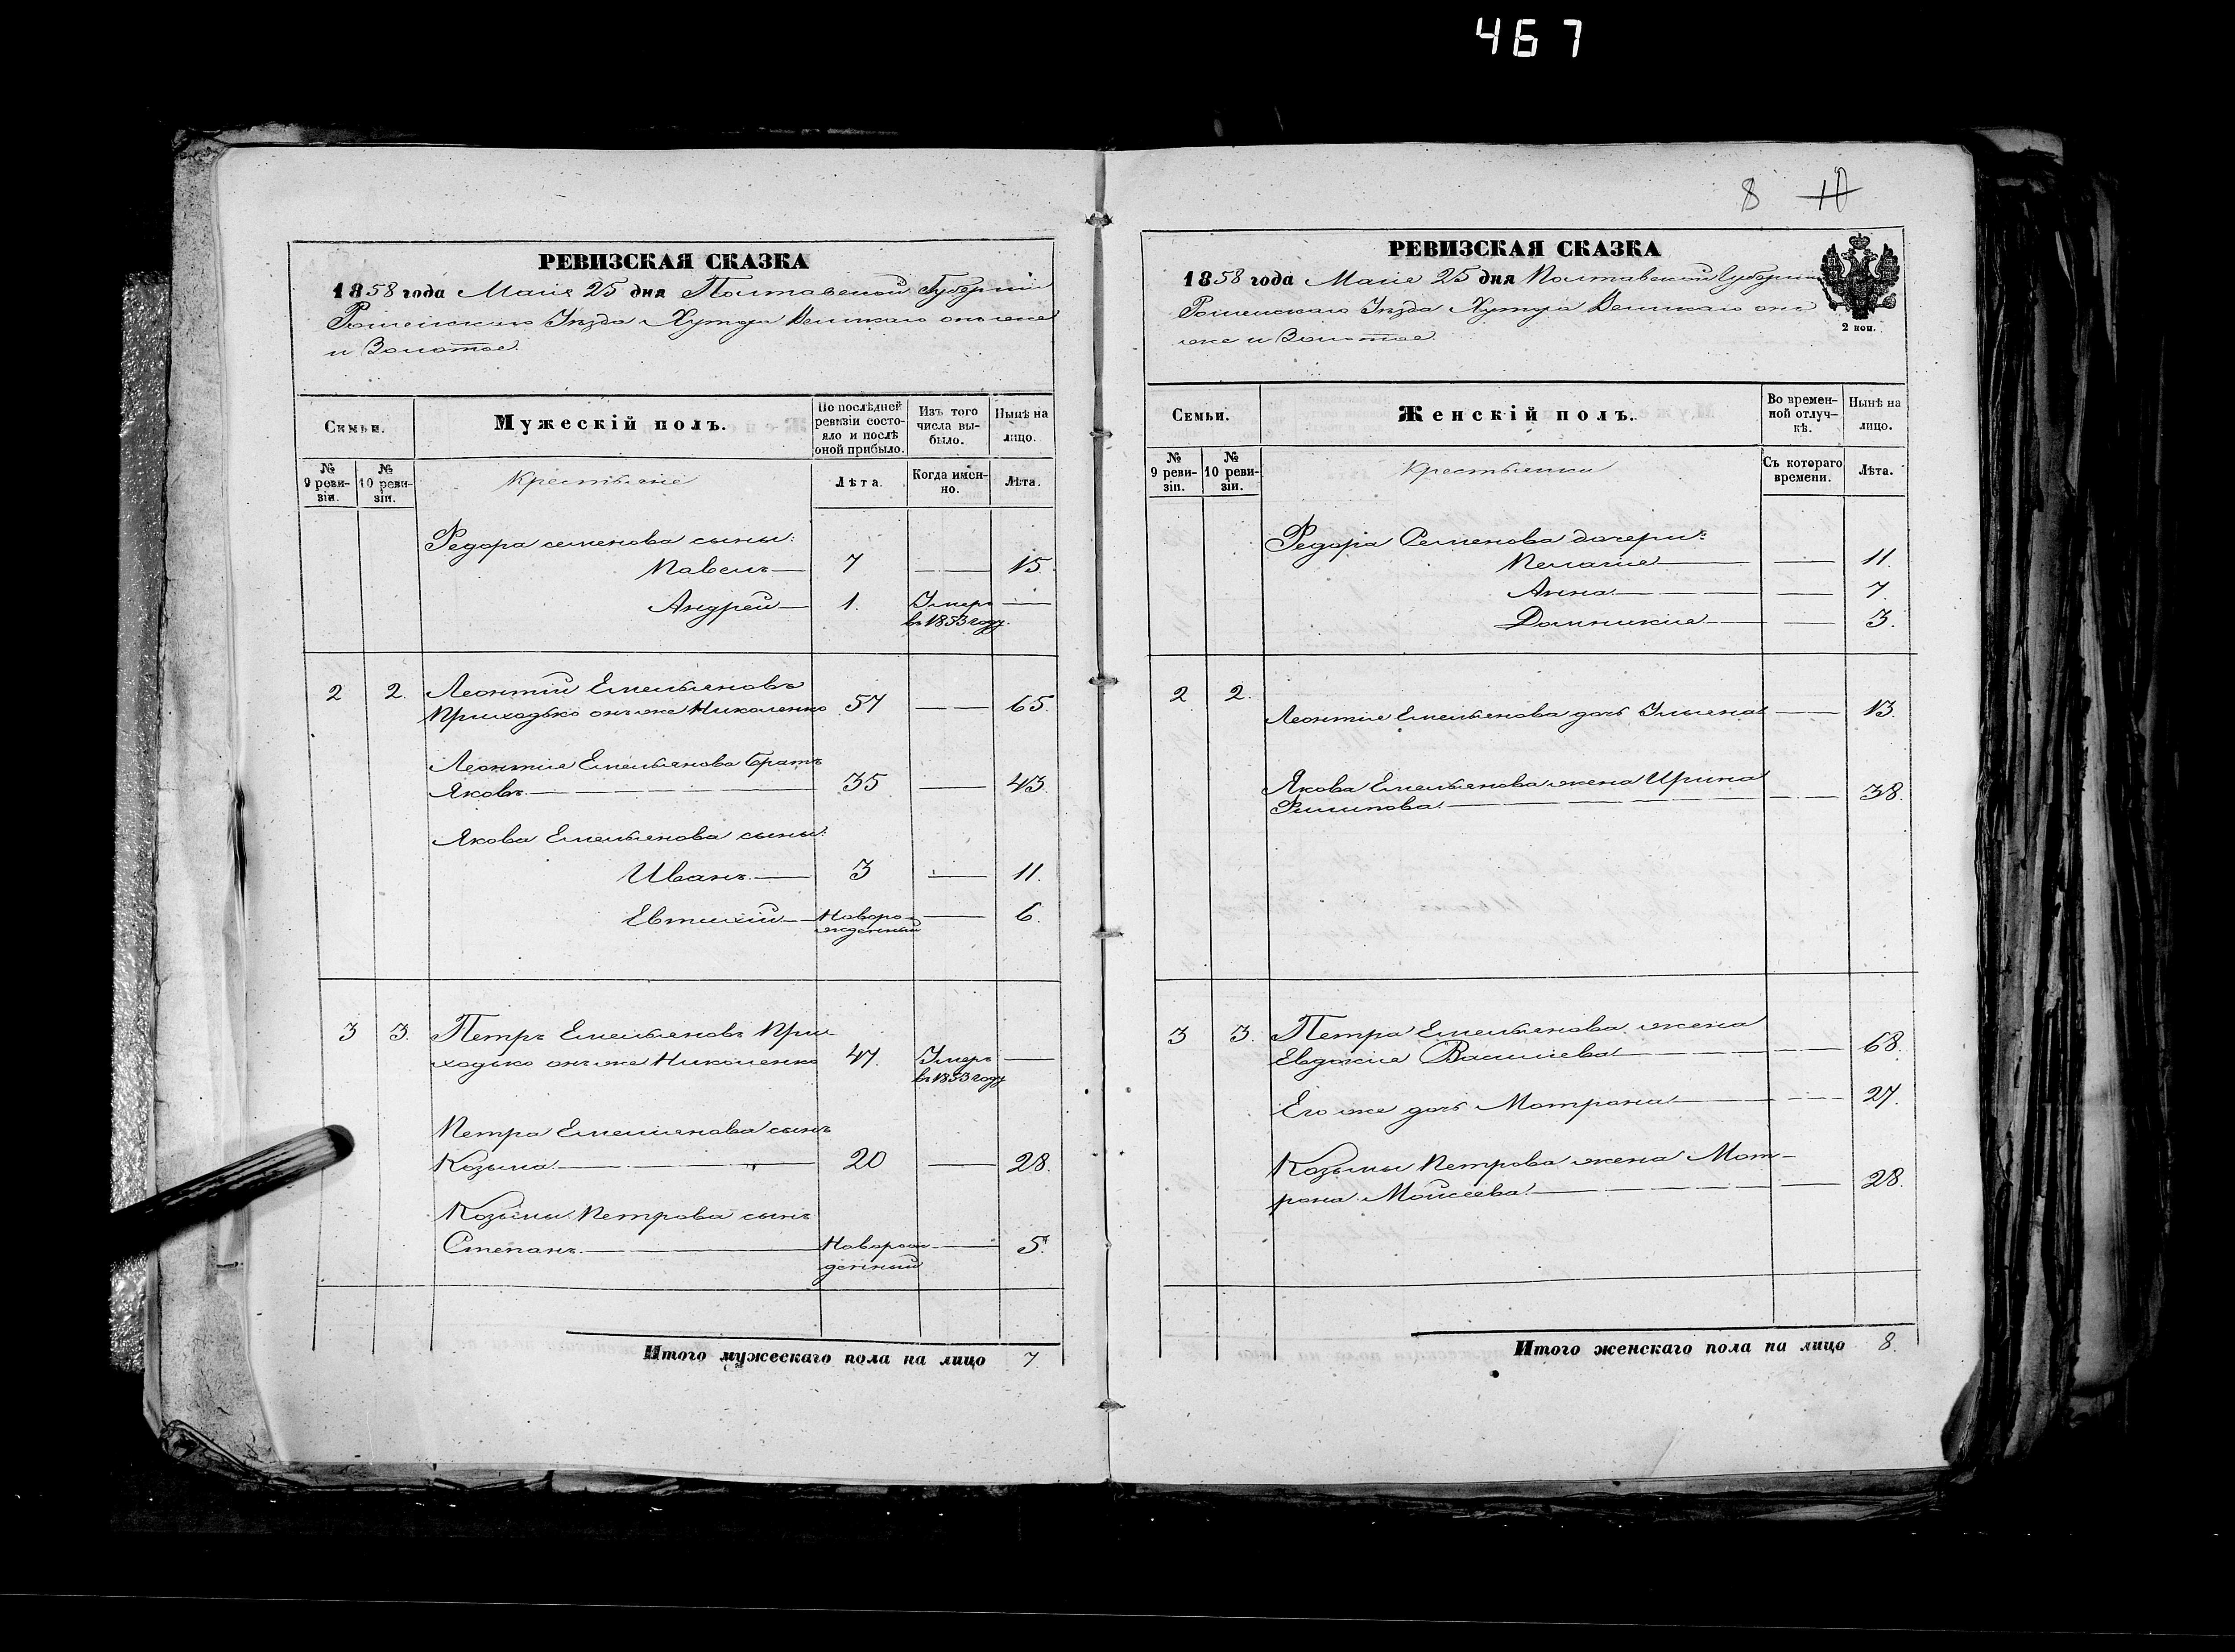 467
РЕВИЗСКАЯ СКАЗКА
1858 года Маія 25 дня Полтавской Губерніи
Роменскаго Уѣзда Хутора Великаго онъ же
и Золотое.
Семьи.
Мужескій полъ.
По послѣдней ревизіи состояло и послѣ оной прибыло.
Изъ того числа выбыло.
Нынѣ на лицо.
№ 9 ревизіи.
№ 10 ревизіи.
Крестьяне
Лѣта.
Когда именно.
Лѣта.
Федора семенова сыны:
Павелъ 7 15.
Андрей 1. Умеръ въ 1853 году.
2 2. Леонтій Емельяновъ
Приходько онъ же Николенко 57 65.
Леонтія Емельянова братъ
Яковъ 35 43.
Якова Емельянова сыны:
Иванъ 3 11.
Евтихій Новорожденный 6.
3 3. Петръ Емельяновъ При-
ходько онъ же Николенко 47. Умеръ въ 1853 году
Петра Емельянова сынъ
Козьма 20 28.
Козьмы Петрова сынъ
Степанъ Новорожденный 5.
Итого мужескаго пола на лицо 7
8 10
РЕВИЗСКАЯ СКАЗКА
1858 года Маія 25 дня Полтавской Губерніи
Роменскаго Уѣзда Хутора Великаго онъ
же и Золотое.
2 коп.
Семьи.
Женскій полъ.
Во временной отлучкѣ.
Нынѣ на лицо.
№ 9 ревизіи.
№ 10 ревизіи.
Крестьянки
Съ котораго времени.
Лѣта.
Федора Семенова дочери:
Пелагія 11.
Анна 7
Домникія 3.
2 2.
Леонтія Емельянова дочь Ульяна 13.
Якова Емельянова жена Ирина
Филипова 38.
3 3. Петра Емельянова жена
Евдокія Василіева 68.
Его же дочь Матрона 27.
Козьмы Петрова жена Мат-
рона Моисеева 28.
Итого женскаго пола на лицо 8.